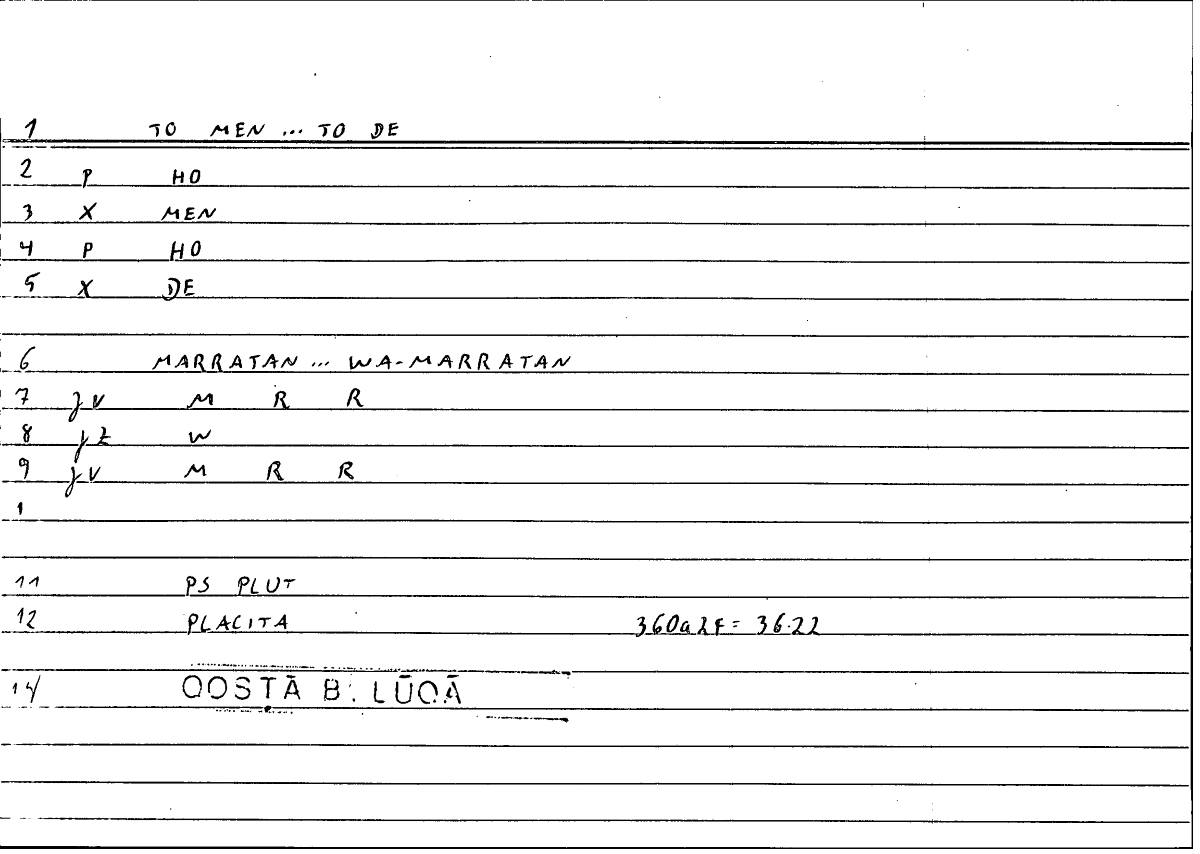 1 TO MEN ... TO DE
2 P HO
3 X MEN
4 P HO
5 X DE
6 MARRATAN ... WA-MARRATAN
7 jv M R R
8 jz W
9 jv M R R
1
11 PS PLUT
12 PLACITA 360a2f = 36.22
14/ QOSṬĀ B. LŪQĀ